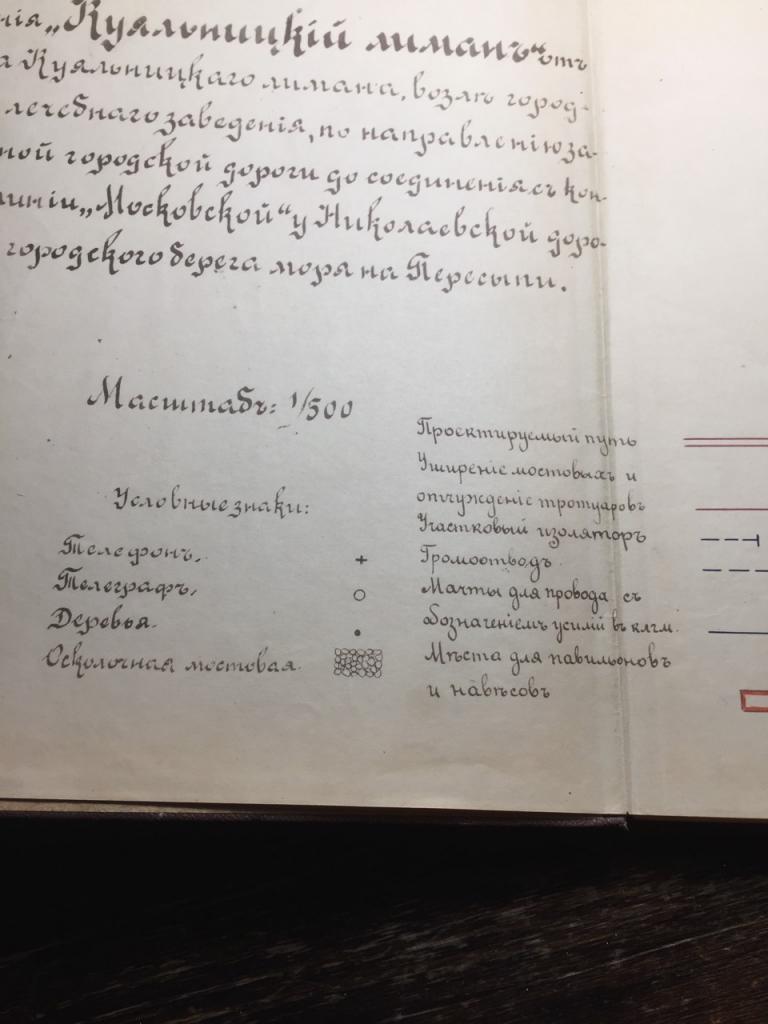 нія „Куяльницкій лиманъ“ отъ
а Куяльницкаго лимана, возлѣ город-
лечебнаго заведенія, по направленію за-
ной городской дороги до соединенія съ кон-
линіи „Московской“ у Николаевской доро-
городского берега моря на Пересыпи.
Масштабъ: 1/500
Условные знаки:
Телефонъ.
Телеграфъ.
Деревья.
Осколочная мостовая.
Проектируемый путь
Уширеніе мостовыхъ и
отчужденіе тротуаровъ
Участковый изоляторъ
Громоотводъ.
Мачты для провода съ
обозначеніемъ усилій въ клгм.
Мѣста для павильоновъ
и навѣсовъ